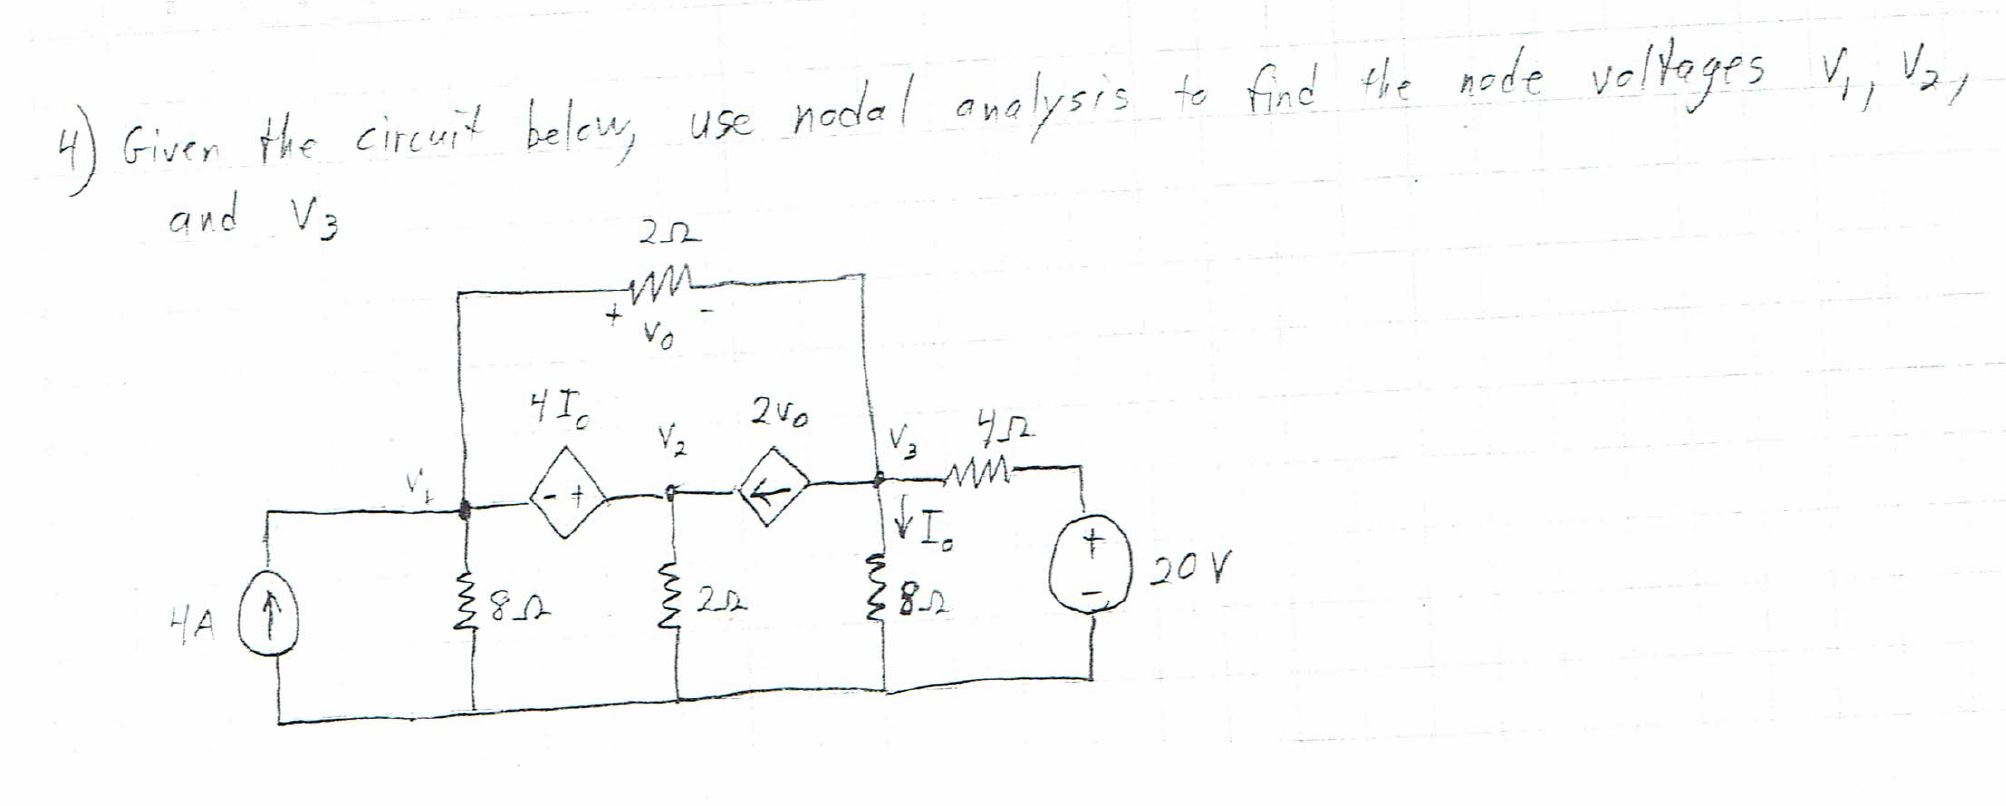 4) Given the circuit below, use nodal analysis to find the node voltages V1, V2,
and V3
2Ω
+ V0 -
4I0
V2
2V0
V3
4Ω
V1
- +
↓ I0
+
-
20V
4A
8Ω
2Ω
8Ω